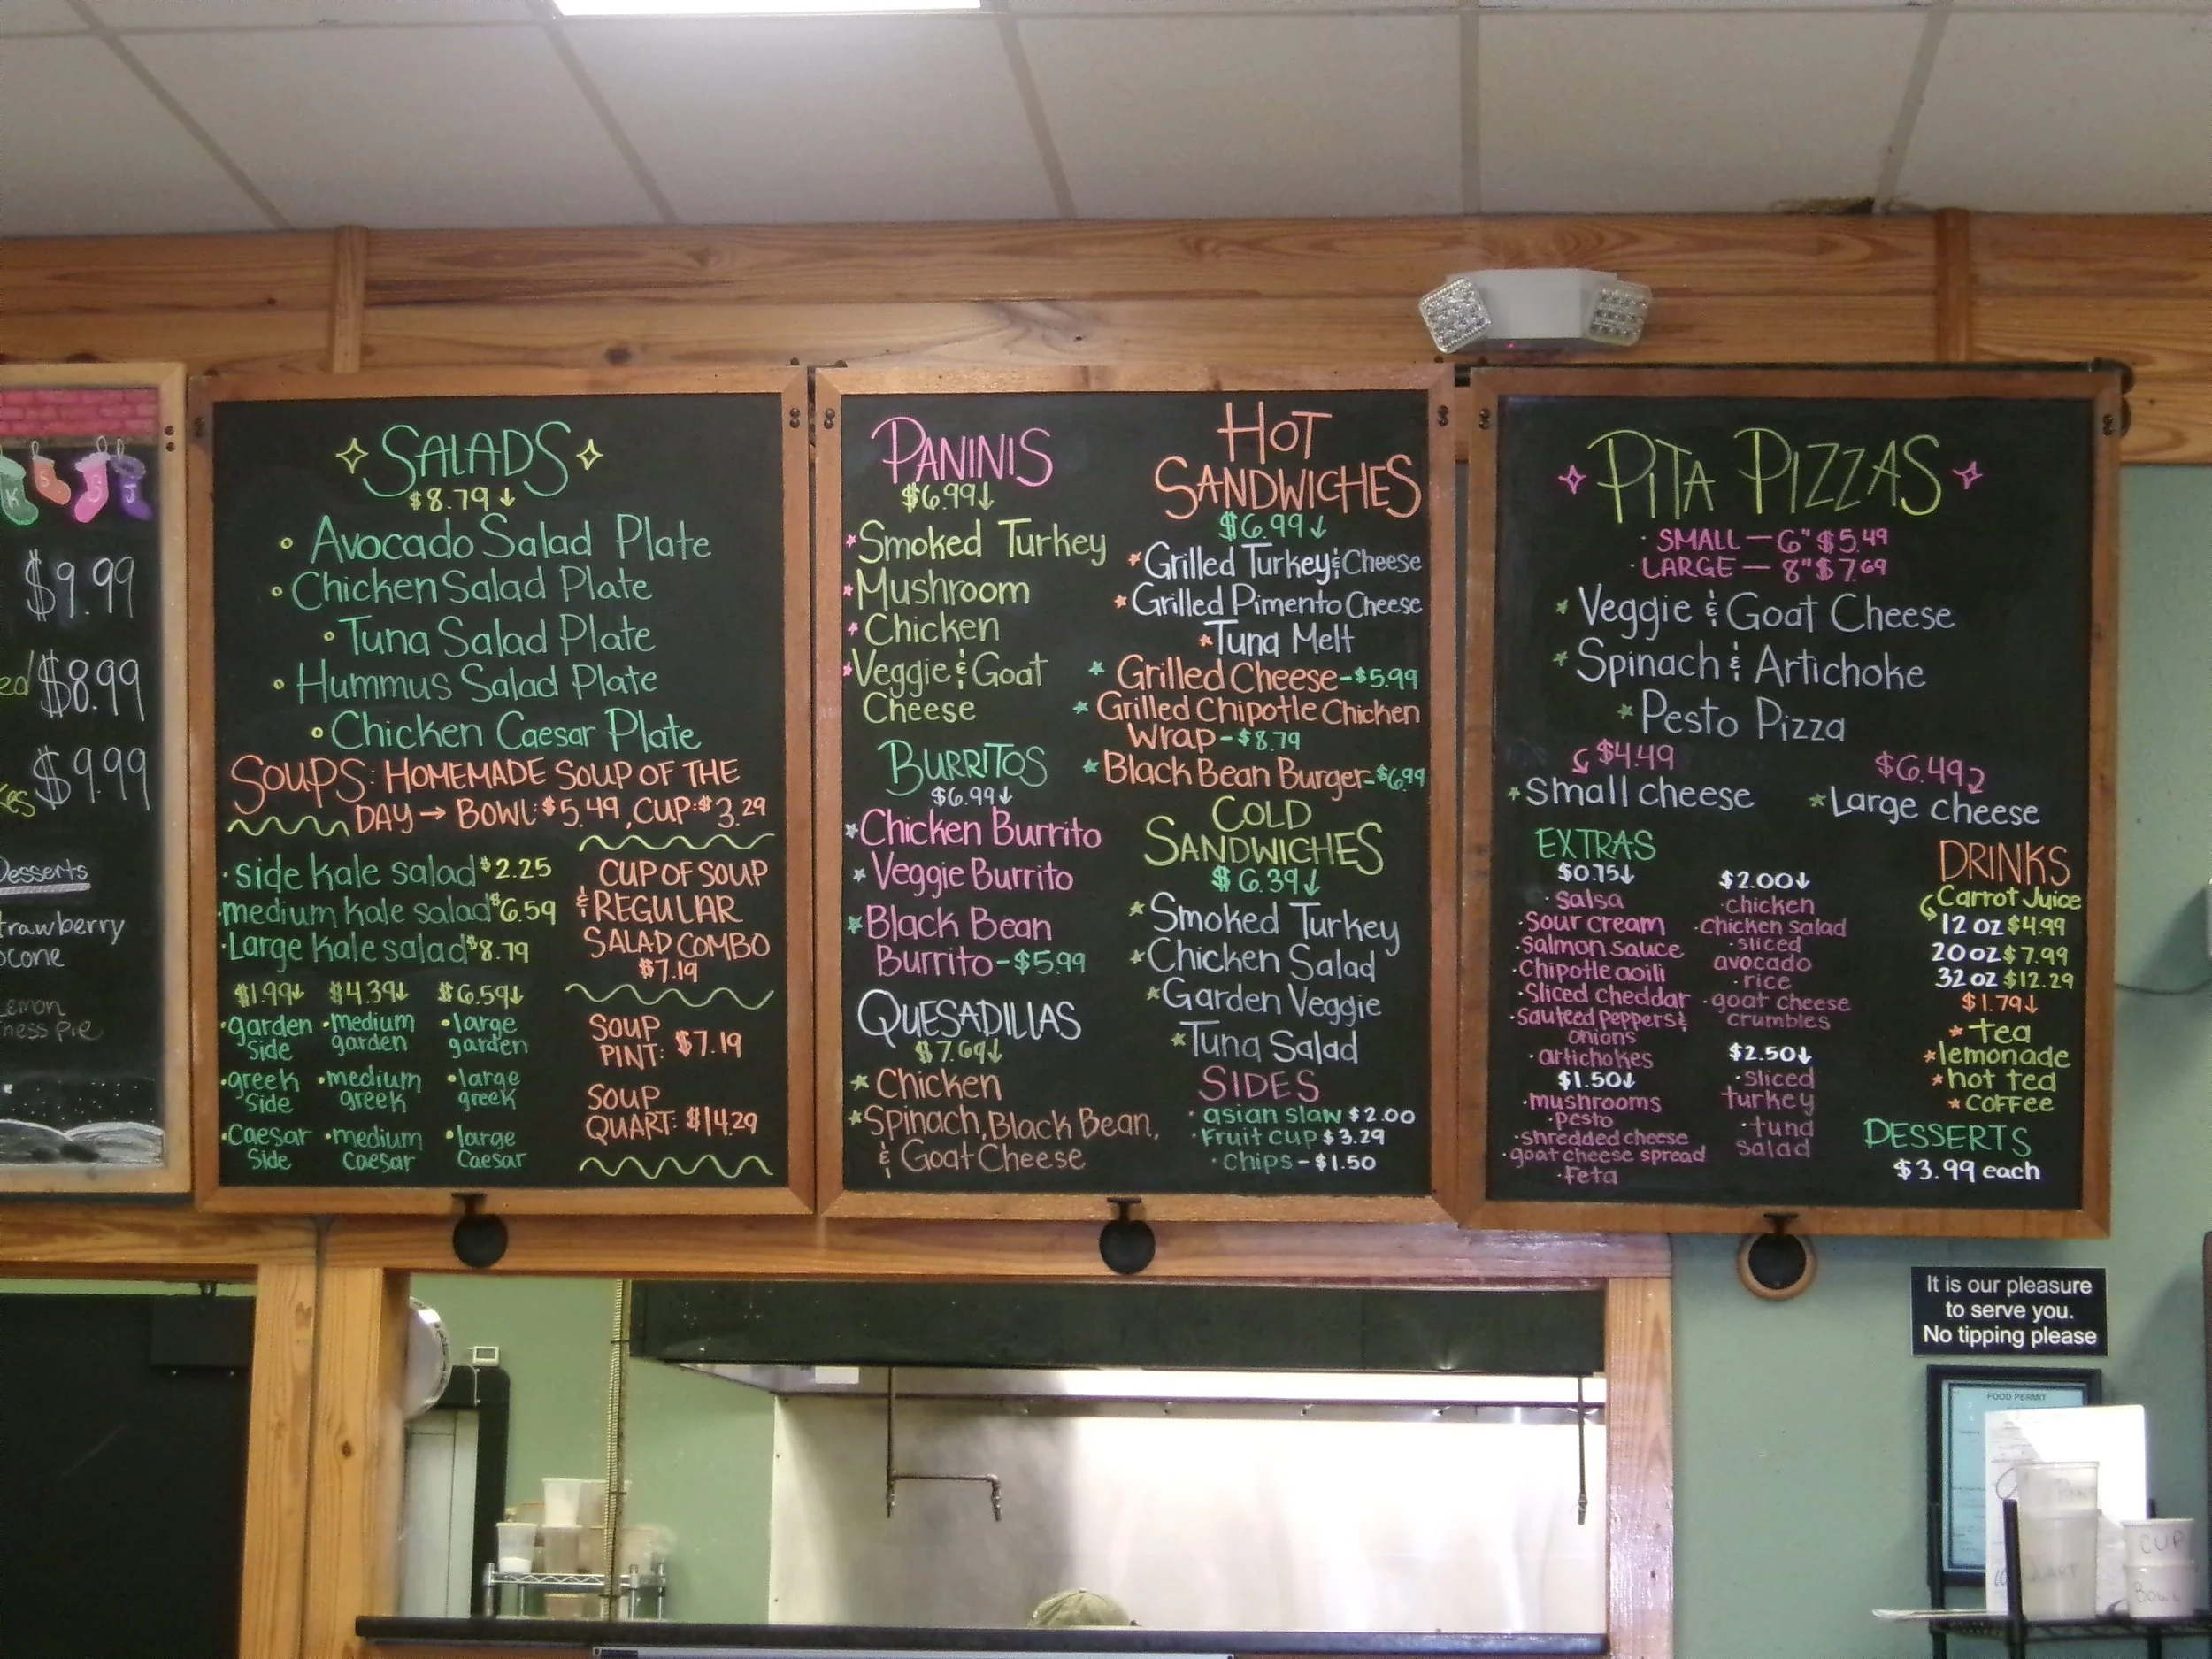 K
S
S
J
$9.99
$8.99
$9.99
Desserts
SALADS
$8.79↓
• Avocado Salad Plate
• Chicken Salad Plate
• Tuna Salad Plate
• Hummus Salad Plate
• Chicken Caesar Plate
SOUPS: HOMEMADE SOUP OF THE
DAY → BOWL: $5.49, CUP: $3.29
• side kale salad $2.25
• medium kale salad $6.59
• Large kale salad $8.79
$1.99↓ $4.39↓ $6.59↓
• garden • medium • large
Side garden garden
• greek • medium • large
Side greek greek
• Caesar • medium • large
Side Caesar Caesar
CUP OF SOUP
& REGULAR
SALAD COMBO
$7.19
SOUP
PINT: $7.19
SOUP
QUART: $14.29
PANINIS
$6.99↓
* Smoked Turkey
* Mushroom
* Chicken
* Veggie & Goat
Cheese
BURRITOS
$6.99↓
* Chicken Burrito
* Veggie Burrito
* Black Bean
Burrito - $5.99
QUESADILLAS
$7.69↓
* Chicken
* Spinach, Black Bean,
& Goat Cheese
HOT
SANDWICHES
$6.99↓
* Grilled Turkey & Cheese
* Grilled Pimento Cheese
* Tuna Melt
* Grilled Cheese - $5.99
* Grilled Chipotle Chicken
Wrap - $8.79
* Black Bean Burger - $6.99
COLD
SANDWICHES
$6.39↓
* Smoked Turkey
* Chicken Salad
* Garden Veggie
* Tuna Salad
SIDES
• asian slaw $2.00
• Fruit cup $3.29
• chips - $1.50
PITA PIZZAS
• SMALL — 6" $5.49
• LARGE — 8" $7.69
* Veggie & Goat Cheese
* Spinach & Artichoke
* Pesto Pizza
$4.49 $6.49
* Small cheese * Large cheese
EXTRAS
$0.75↓
• Salsa
• Sour cream
• salmon sauce
• Chipotle aoili
• Sliced cheddar
• sauteed peppers &
onions
• artichokes
$1.50↓
• mushrooms
• pesto
• shredded cheese
• goat cheese spread
• Feta
$2.00↓
• chicken
• chicken salad
• sliced
avocado
• rice
• goat cheese
crumbles
$2.50↓
• sliced
turkey
• tuna
salad
DRINKS
Carrot Juice
12 oz $4.99
20 oz $7.99
32 oz $12.29
$1.79↓
* tea
* lemonade
* hot tea
* coffee
DESSERTS
$3.99 each
It is our pleasure
to serve you.
No tipping please
FOOD PERMIT
CUP
BOWL